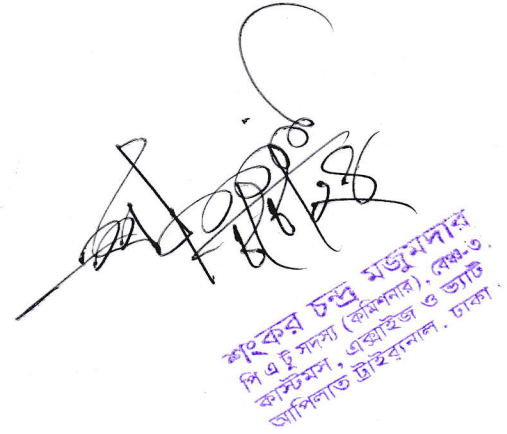 শংকর চন্দ্র মজুমদার
পি এ টু সদস্য (কমিশনার), বেঞ্চ-৩.
কাস্টমস, এক্সাইজ ও ভ্যাট
আপিলাত ট্রাইব্যুনাল. ঢাকা.